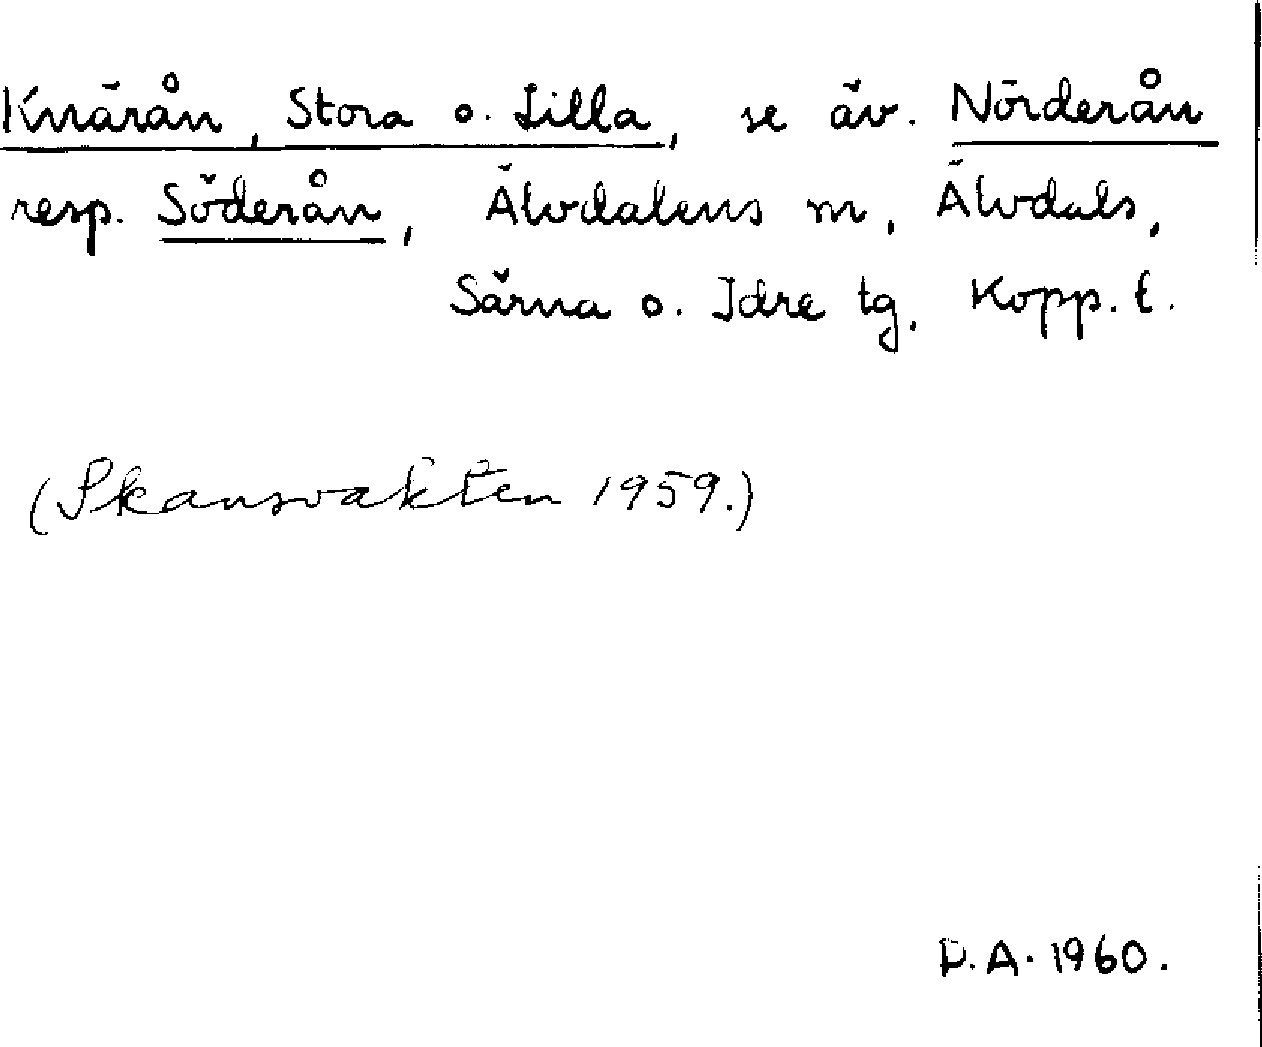 Knärån, Stora o. Lilla, se äv. Nörderån
resp. Söderån, Älvdalens m, Älvdals,
Särna o. Idre tg, Kopp. l.
(Skansvakten 1959.)
D.A. 1960.